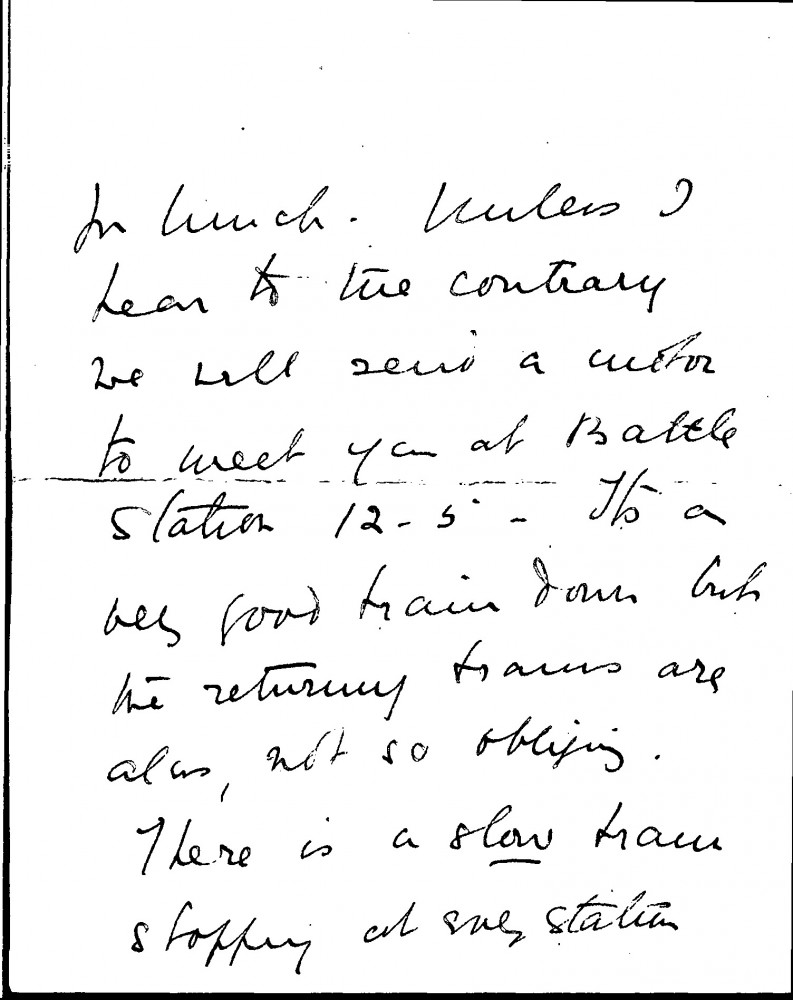 for lunch. Unless I
hear to the contrary
we will send a motor
to meet you at Battle
Station 12-5 - It's a
very good train down but
the returning trains are
alas, not so obliging.
There is a slow train
stopping at every station